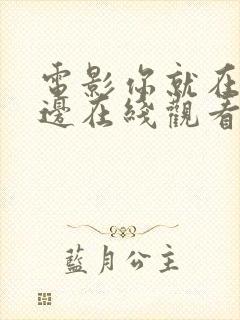 電影你就在
邊在綫觀看
藍月公主